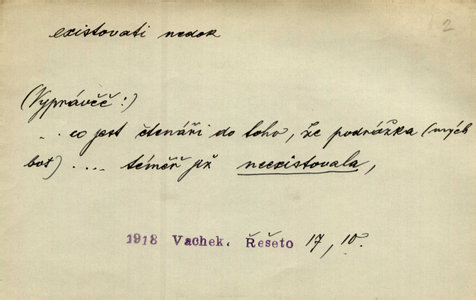 existovati nedok
2
(Vyprávěč:)
... co jest čtenáři do toho, že podrážka (mých
bot) .... téměř již neexistovala,
1918 Vachek, Řešeto 17, 10.